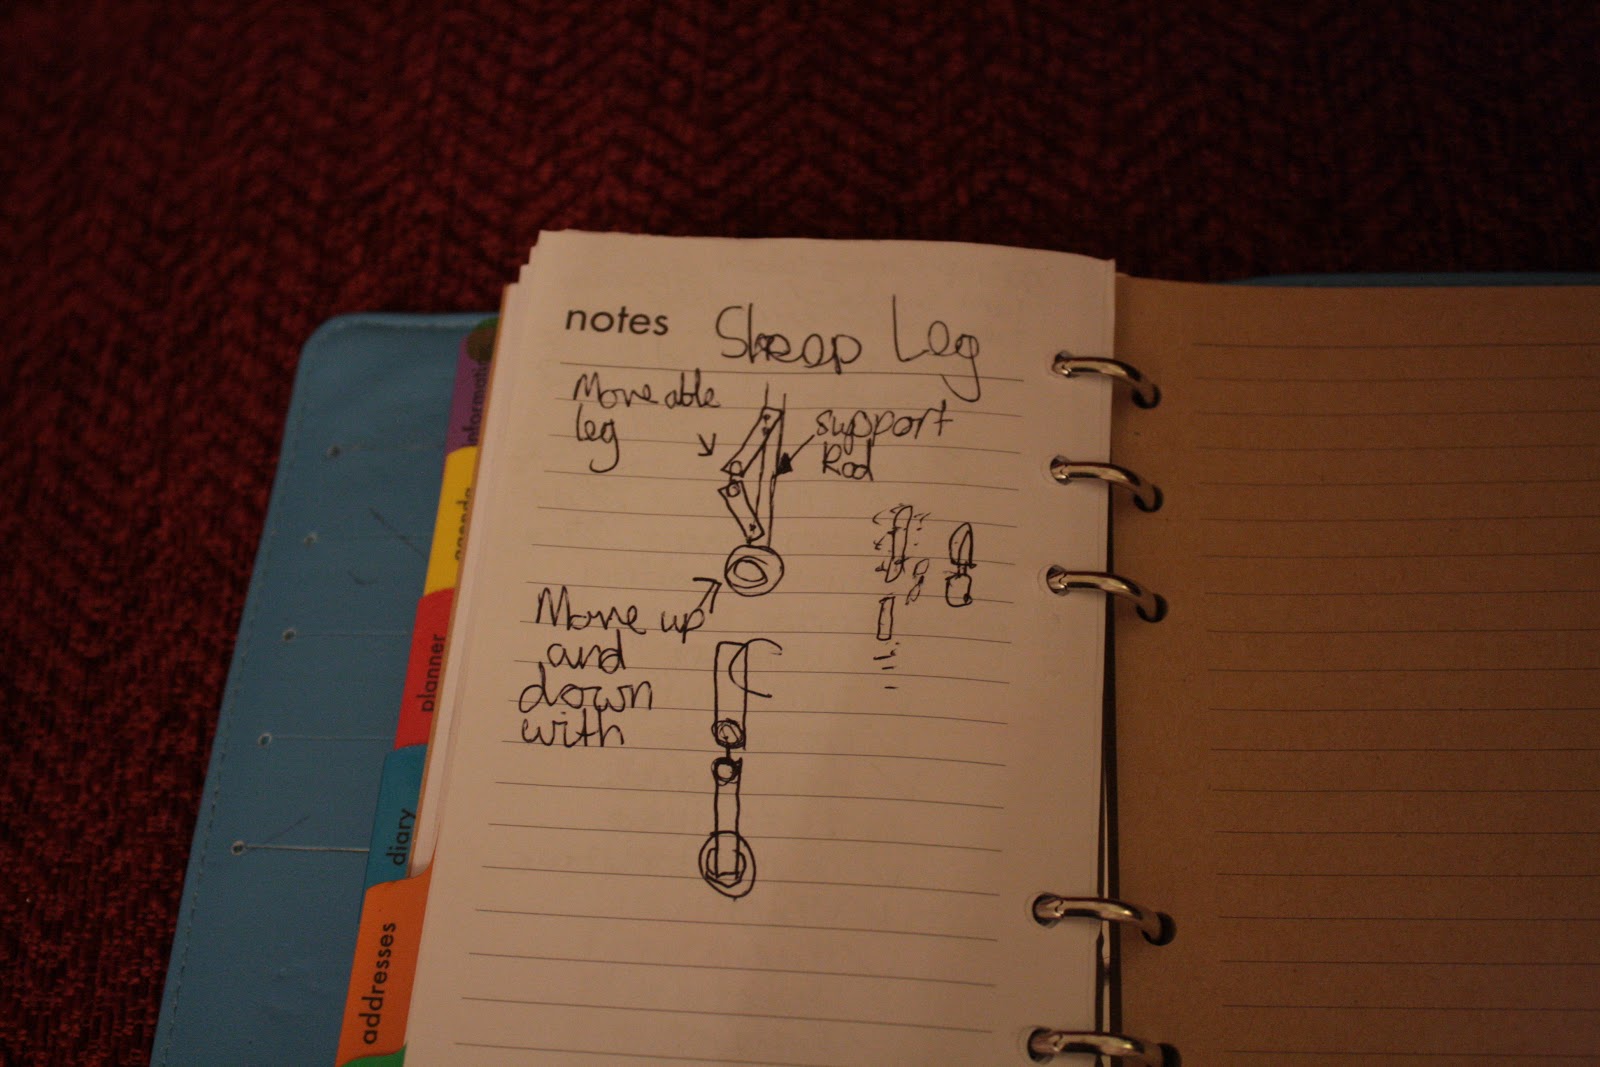 notes Sheep Leg
Moveable
leg
support
Rod
Move up
and
down
with
information
agenda
planner
diary
addresses